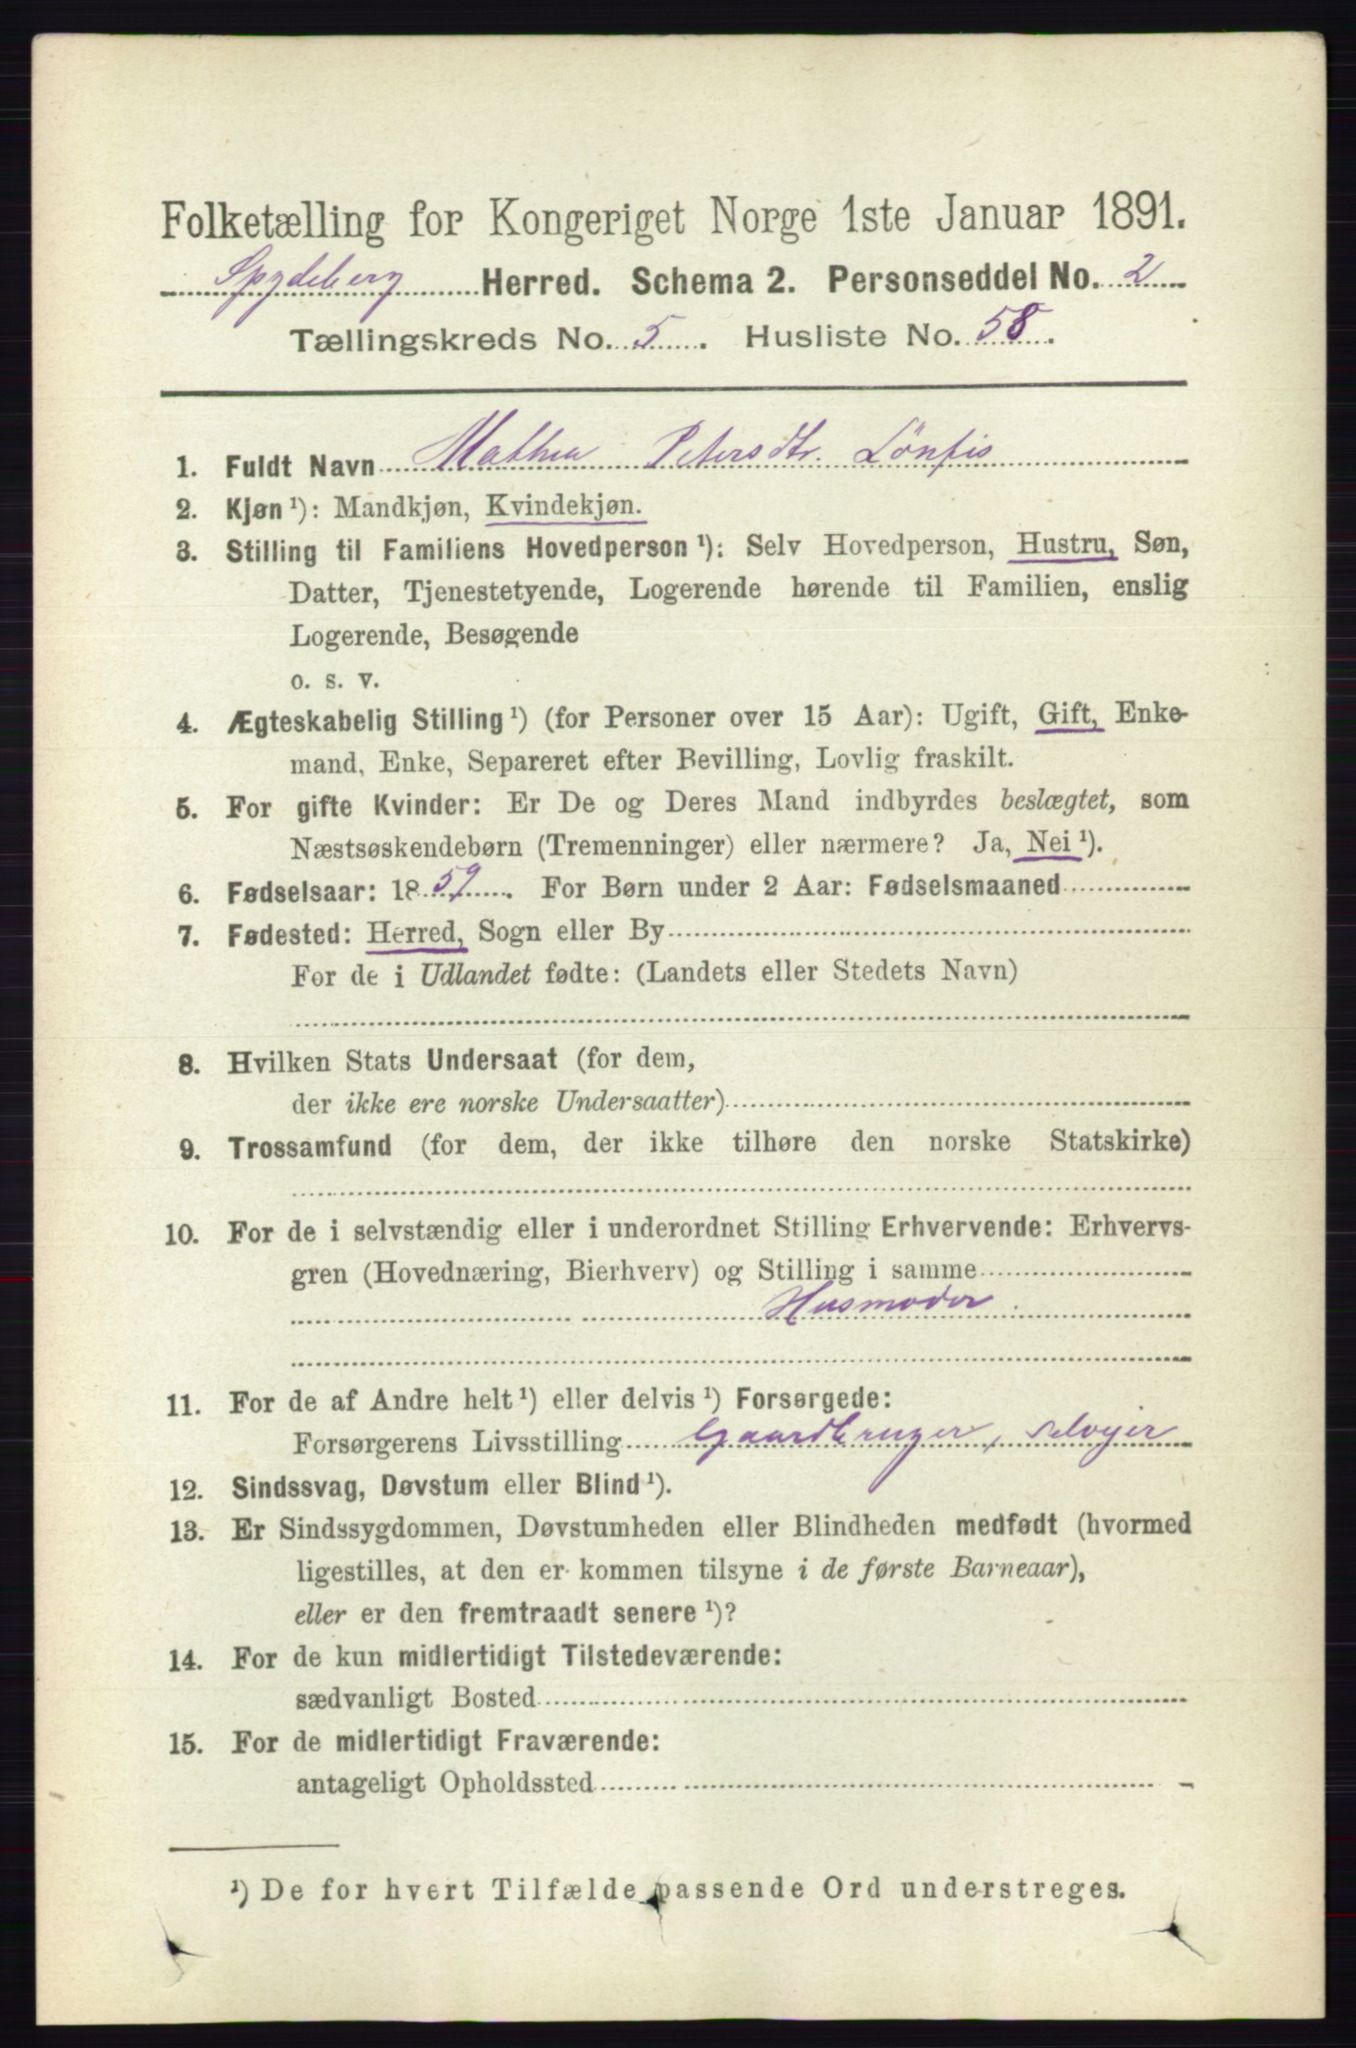 Folketælling for Kongeriget Norge 1ste Januar 1891.
Spydeberg Herred. Schema 2. Personseddel No. 2
Tællingskreds No. 5. Husliste No. 58.
1. Fuldt Navn Mathea Petersdtr. Lönfis
2. Kjøn ¹): Mandkjøn, Kvindekjøn.
3. Stilling til Familiens Hovedperson ¹): Selv Hovedperson, Hustru, Søn,
Datter, Tjenestetyende, Logerende hørende til Familien, enslig
Logerende, Besøgende
o. s. v.
4. Ægteskabelig Stilling ¹) (for Personer over 15 Aar): Ugift, Gift, Enke-
mand, Enke, Separeret efter Bevilling, Lovlig fraskilt.
5. For gifte Kvinder: Er De og Deres Mand indbyrdes beslægtet, som
Næstsøskendebørn (Tremenninger) eller nærmere? Ja, Nei ¹).
6. Fødselsaar: 1859. For Børn under 2 Aar: Fødselsmaaned
7. Fødested: Herred, Sogn eller By
For de i Udlandet fødte: (Landets eller Stedets Navn)
8. Hvilken Stats Undersaat (for dem,
der ikke ere norske Undersaatter)
9. Trossamfund (for dem, der ikke tilhøre den norske Statskirke)
10. For de i selvstændig eller i underordnet Stilling Erhvervende: Erhvervs-
gren (Hovednæring, Bierhverv) og Stilling i samme
Husmoder.
11. For de af Andre helt ¹) eller delvis ¹) Forsørgede:
Forsørgerens Livsstilling Gaardbruger, selvejer
12. Sindssvag, Døvstum eller Blind ¹).
13. Er Sindssygdommen, Døvstumheden eller Blindheden medfødt (hvormed
ligestilles, at den er kommen tilsyne i de første Barneaar),
eller er den fremtraadt senere ¹)?
14. For de kun midlertidigt Tilstedeværende:
sædvanligt Bosted
15. For de midlertidigt Fraværende:
antageligt Opholdssted
¹) De for hvert Tilfælde passende Ord understreges.